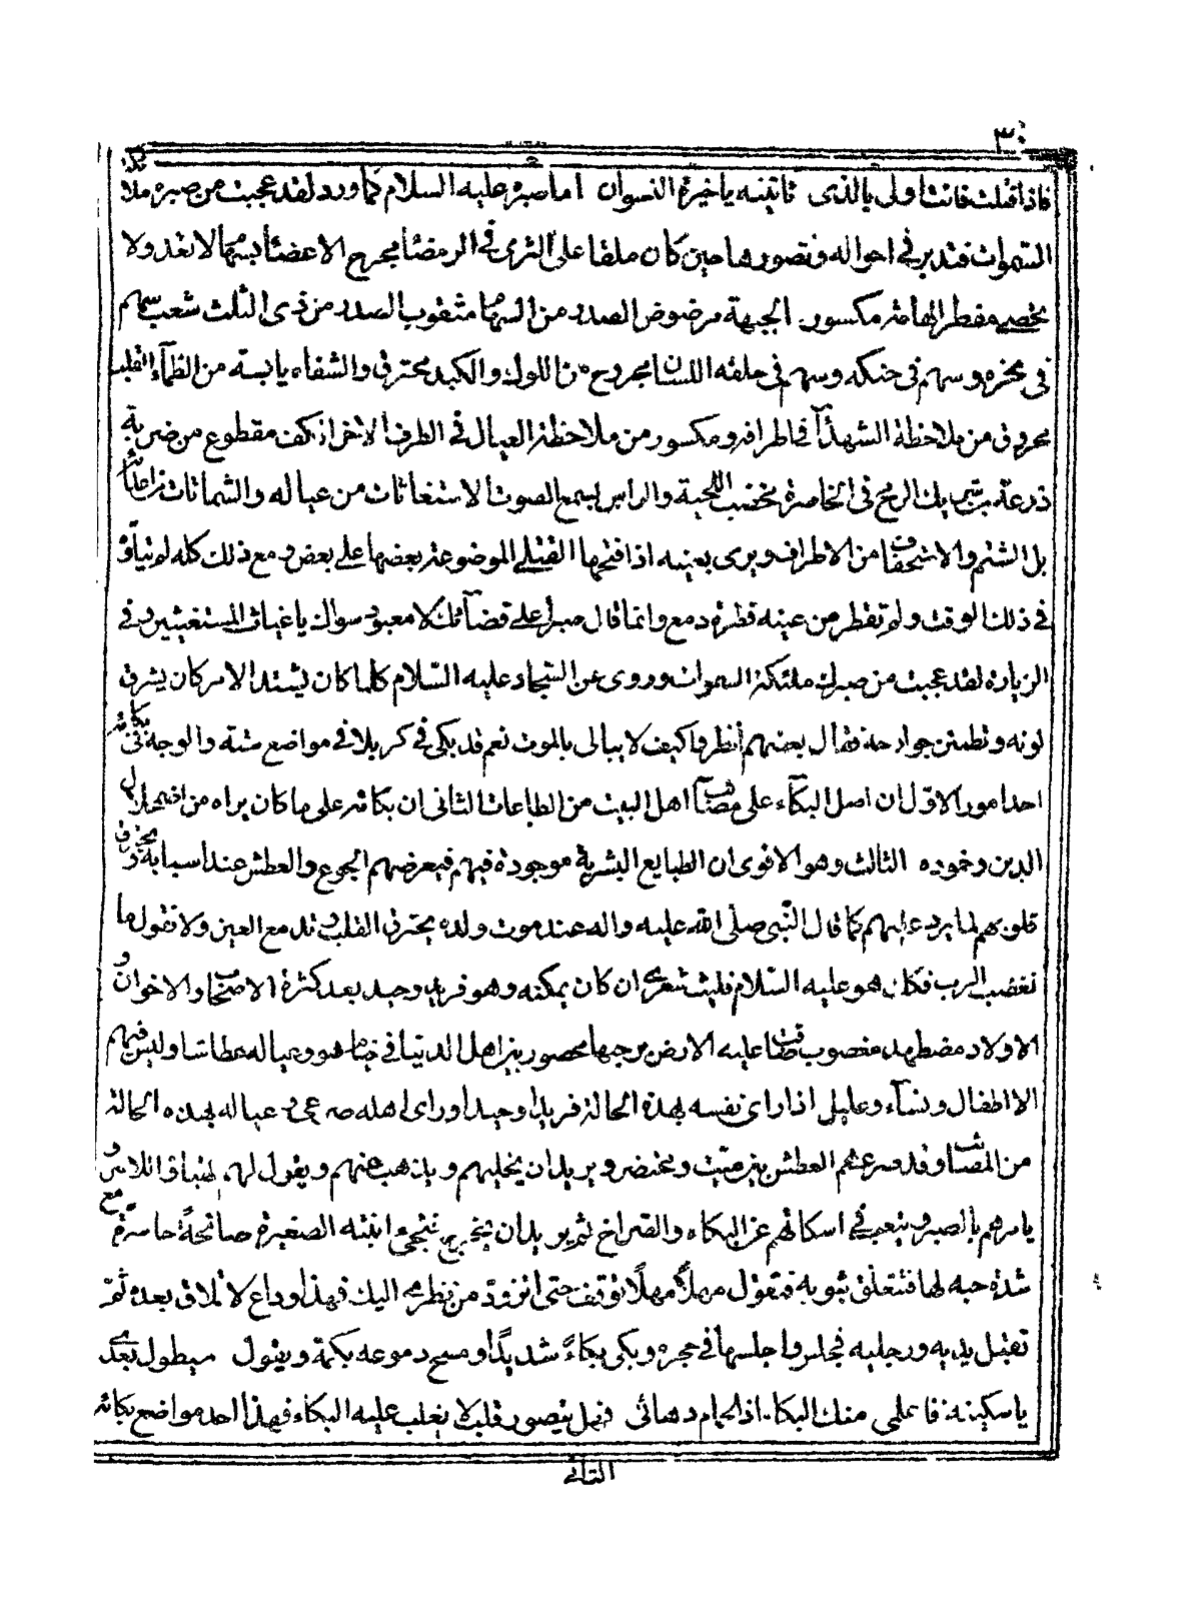 ٣٠
فاذا قتلت فانت اولى بالذى تاتينه ياخيرة النسوان اما صبره عليه السلام كما ورد لقد عجبت من صبره ملائكة
السموات فتدبر فى احواله وتصورها حين كان ملقا على الثرى فى الرمضا مجرح الاعضا بسهام لا تعد ولا
تحصى مفطر الهامة مكسور الجبهة مرضوض الصدر من السهام مثقوب الصدر من ذى الثلث شعب سهم
فى نحره وسهم فى حنكه وسهم فى حلقه اللسان مجروح من اللوك والكبد محترق والشفاه يابسة من الظمآء القلب
محروق من ملاحظة الشهدآ فى اطرافه ومكسور من ملاحظة العيال فى الطرف الاخر الكف مقطوع من ضربة
ذرعة بن شريك الرمح فى الخاصرة مخضب اللحية والراس يسمع الصوت الاستغاثات من عياله والشماتات من اعدائه
بل الشتم والاستخفاف من الاطراف ويرى بعينه اذا فتحها القتلى الموضوعة بعضها على بعض ومع ذلك كله لم يتأوه
فى ذلك الوقت ولم تقطر من عينه قطرة دمع وانما قال صبرا على قضآئك لا معبود سواك يا غياث المستغيثين وفى
الزيارة لقد عجبت من صبرك ملئكة السموات وروى عن السجاد عليه السّلام كلما كان يشتد الامر كان يشرق
لونه وتطمئن جوارحه فقال بعضهم أنظروا كيف لا يبالى بالموت نعم قد بكى فى كربلا فى مواضع ستة والوجه فى بكائه
احد امور الاوّل ان اصل البكآء على مصائب اهل البيت من الطاعات الثانى ان بكائه على ما كان يراه من اضمحلال
الدين وخموده الثالث وهو الاقوى ان الطبايع البشرية موجودة فيهم فيعرضهم الجوع والعطش عند اسبابه وتحترق
قلوبهم لما يرد عليهم كما قال النّبى صلى الله عليه واله عند موت ولده يحترق القلب وتدمع العين ولا نقول ما
تغضب الرب فكان هو عليه السّلام فليت شعرى ان كان يمكنه وهو فريد وحيد بعد كثرة الاصحاب والاخوان و
الاولاد مضطهد مغصوب ضاقت عليه الارض برحبها محصور بين اهل الدنيا فى خيام هو وعياله عطاشا وليس فيهم
الا اطفال ونسآء وعليل اذا راى نفسه بهذه الحالة فريدا وحيدا وراى اهله عياله بهذه الحالة
من المصائب وقد صرعهم العطش بين ميت ومحتضر ويريد ان يخليهم ويذهب عنهم ويقول لهم و
يامرهم بالصبر ويتعب فى اسكاتهم عن البكاء والصراخ ثم يريد ان يخرج فتجىء ابنته الصغيرة صائحةً حاسرة مع
شدة حبه لها فتتعلق بثوبه فتقول مهلًا مهلًا توقف حتى اتزوّد من نظرى اليك فهذا وداع لا تلاق بعده ثمّ
تقبل يديه ورجليه فجلس واجلسها فى حجره وبكى بكاءً شديدًا ومسح دموعه بكمه ويقول سيطول بعدى
يا سكينة فاعلمى منك البكاء اذ الحمام دهانى فهل يتصور قلب لا يغلب عليه البكاء فهذا احد مواضع بكائه
الثانى